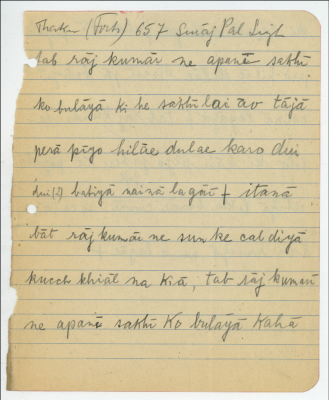 Thakur (Forti) 657 Suráj Pal Sigh
tab ráj kumár ne apanē sakhī
ko bulāyā ki he sakhī lai āo tājā
perā pīyo hilāe dulae karo dui
dui (?) batiyā nainā lagāi + itanā
bāt rāj kumār ne sun ke cal diyā
kucch khiāl na kiā, tab rāj kumarī
ne apanē sakhī Ko bulāyā Kahā